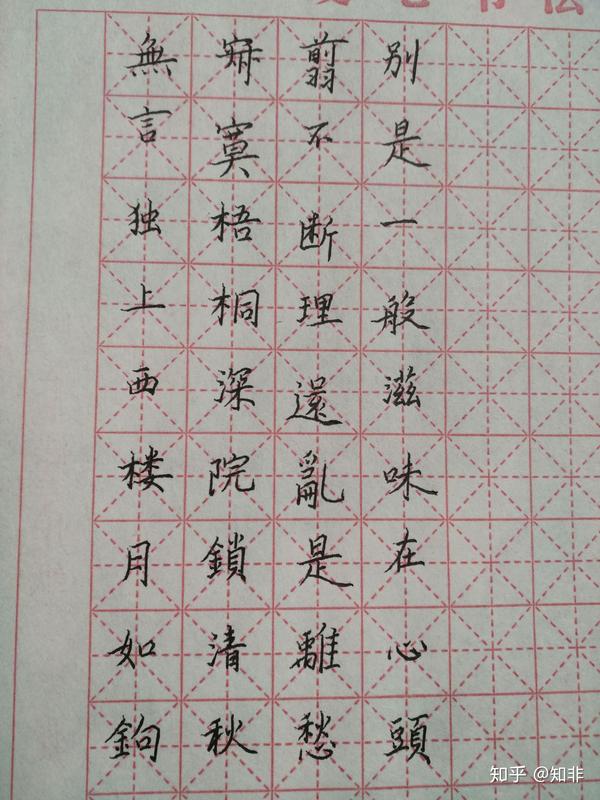 無言独上西楼月如鉤
寂寞梧桐深院鎖清秋
翦不断理還亂是離愁
别是一般滋味在心頭
知乎 @知非